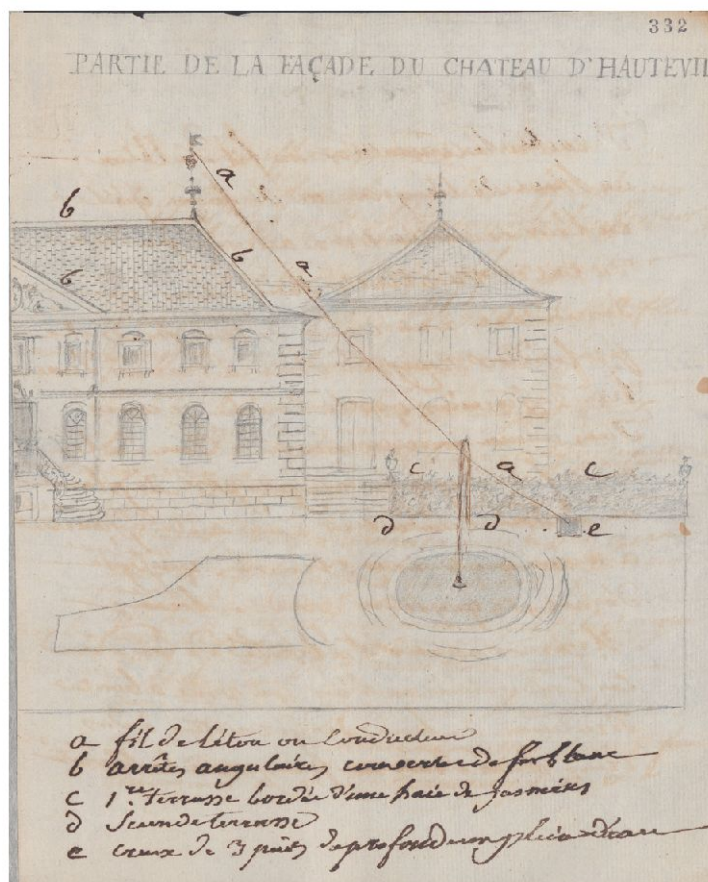 332
PARTIE DE LA FAÇADE DU CHATEAU D'HAUTEVIL
a
b
b
b
a
c
a
c
d
d
e
a fil de léton ou Conducteur
b arrêtes angulaires couvertes de fer blanc
c 1.re terrasse bordée d'une haie de jasmins
d Seconde terrasse
e creux de 3 pieds de profondeur plein d'eau